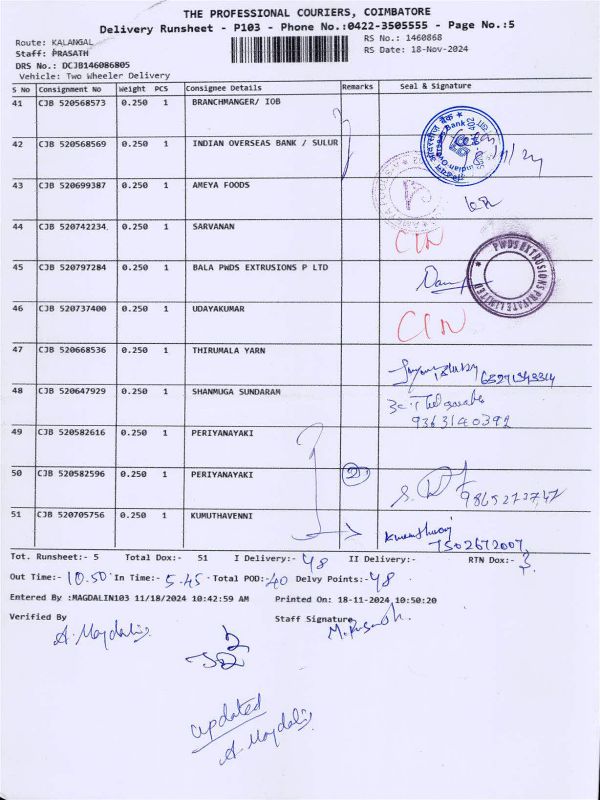 THE PROFESSIONAL COURIERS, COIMBATORE
Delivery Runsheet - P103 - Phone No.:0422-3505555 - Page No.:5
Route: KALANGAL
RS No.: 1460868
Staff: PRASATH
RS Date: 18-Nov-2024
DRS No.: DCJB146086805
Vehicle: Two Wheeler Delivery
S No Consignment No Weight PCS Consignee Details Remarks Seal & Signature
41 CJB 520568573 0.250 1 BRANCHMANGER/ IOB
42 CJB 520568569 0.250 1 INDIAN OVERSEAS BANK / SULUR
43 CJB 520699387 0.250 1 AMEYA FOODS
44 CJB 520742234 0.250 1 SARVANAN CIN
45 CJB 520797284 0.250 1 BALA PWDS EXTRUSIONS P LTD
PWDS EXTRUSIONS PRIVATE LIMITED
46 CJB 520737400 0.250 1 UDAYAKUMAR CIN
47 CJB 520668536 0.250 1 THIRUMALA YARN
48 CJB 520647929 0.250 1 SHANMUGA SUNDARAM
9363140392
49 CJB 520582616 0.250 1 PERIYANAYAKI
50 CJB 520582596 0.250 1 PERIYANAYAKI 2
51 CJB 520705756 0.250 1 KUMUTHAVENNI
7502672007
Tot. Runsheet:- 5 Total Dox:- 51 I Delivery:- 48 II Delivery:- RTN Dox:- 3
Out Time:- 10.50 In Time:- 5.45 Total POD:- 40 Delvy Points:- 48
Entered By :MAGDALIN103 11/18/2024 10:42:59 AM Printed On: 18-11-2024 10:50:20
Verified By Staff Signature
A. Magdalin M. Prasath
updated
A. Magdalin